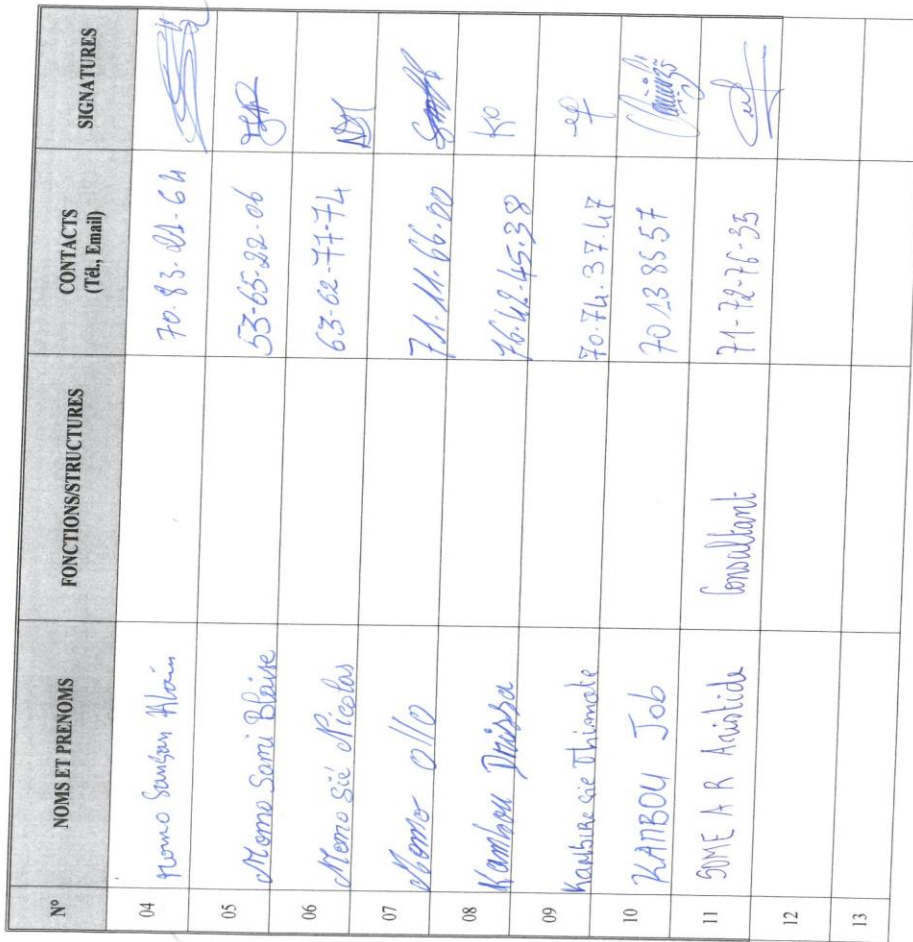 N° NOMS ET PRENOMS FONCTIONS/STRUCTURES CONTACTS (Tél., Email) SIGNATURES
04 Momo Sansan Alain 70.83.21-64
05 Momo Sami Blaise 53-65-22-06
06 Momo Sié Nicolas 63-62-77-74
07 Momo Ollo 71.11.66.00
08 Kambou Drissa 76.42.45.38
09 Kambire Sie Thimote 70.74.37.47
10 KAMBOU Job 70 13 85 57
11 SOME A R Aristide Consultant 71-72-76-33
12
13